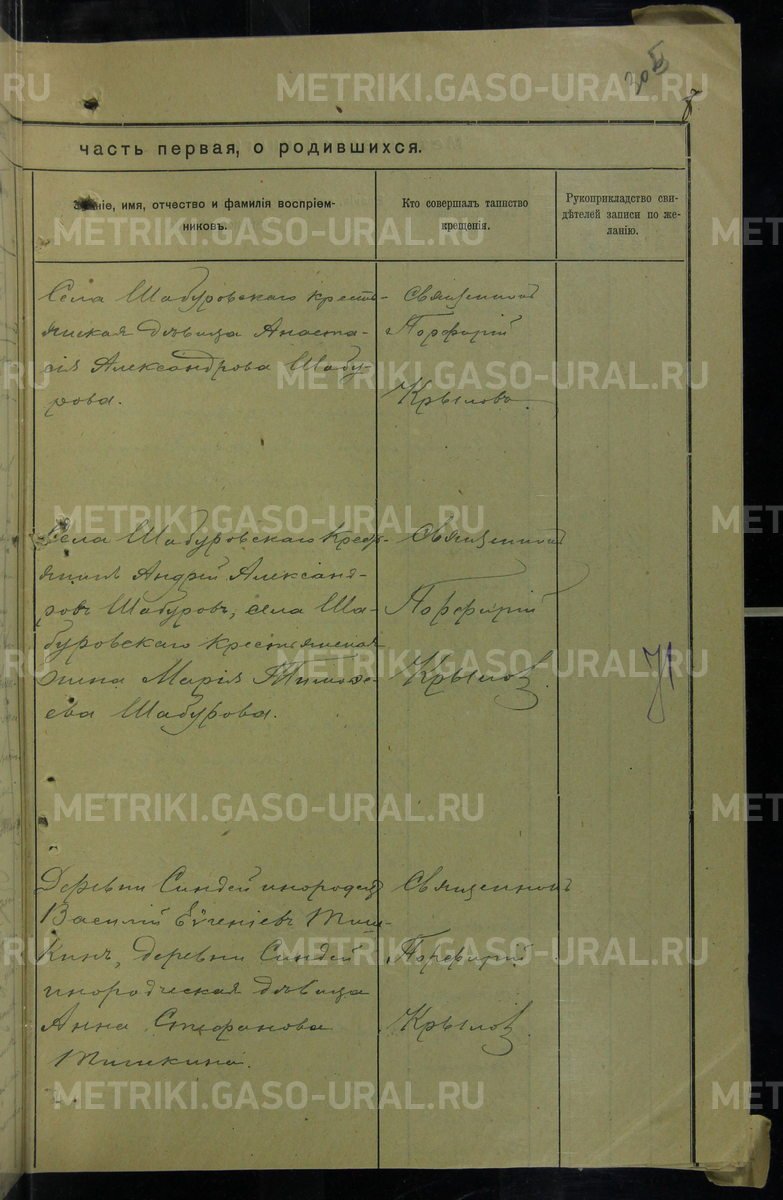 часть первая, о родившихся.
Званіе, имя, отчество и фамилія воспріем-
никовъ.
Кто совершалъ таинство
крещенія.
Рукоприкладство сви-
дѣтелей записи по же-
ланію.
Села Шабуровскаго кресть-
янская дѣвица Анаста-
сія Александрова Шабу-
рова.
Священникъ
Порфирій
Крыловъ.
Села Шабуровскаго крест-
янинъ Андрей Александ-
ровъ Шабуровъ, села Ша-
буровскаго крестьянская
жена Марія Тимофе-
ева Шабурова.
Священникъ
Порфирій
Крыловъ.
Деревни Синдей инородецъ
Василій Евгеніевъ Тиш-
кинъ, деревни Синдей
инородческая дѣвица
Анна Стефанова
Тишкина.
Священникъ
Порфирій
Крыловъ.
METRIKI.GASO-URAL.RU